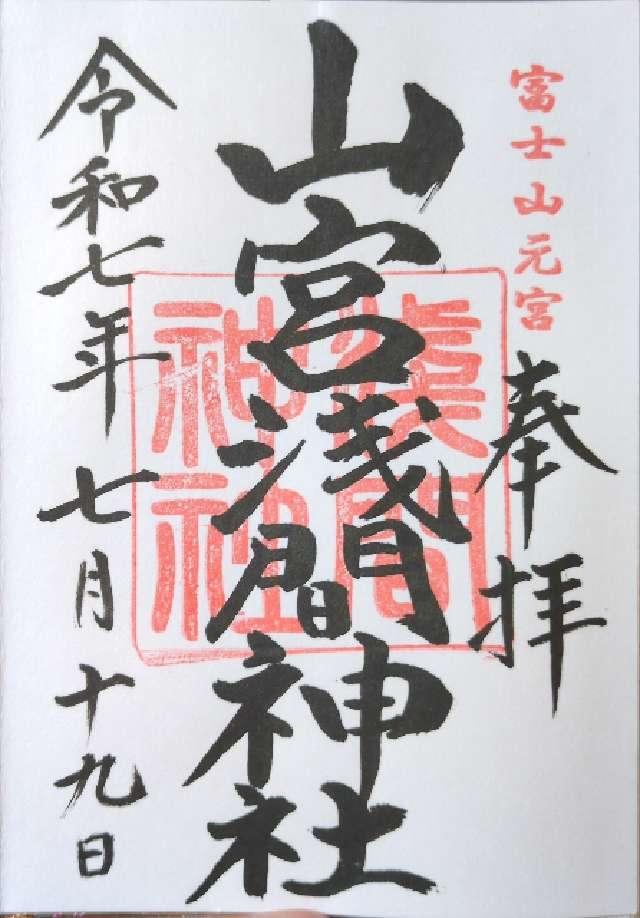 富士山元宮
奉拝
山宮浅間神社
浅間神社
令和七年七月十九日